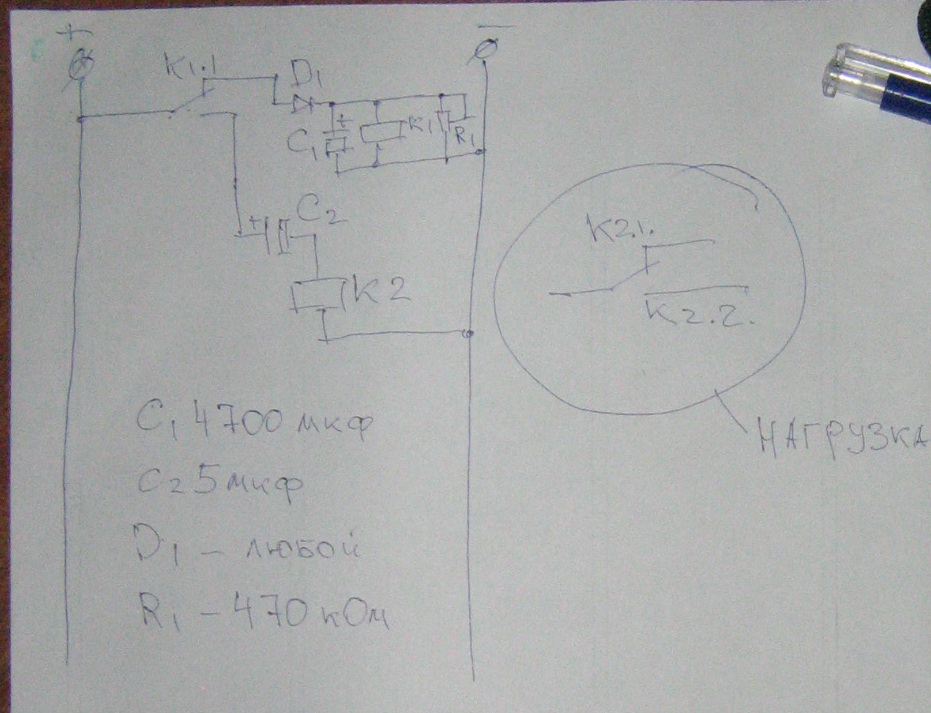 + −
K1.1 D1
+
C1 K1 R1
+ C2
K2
K2.1.
K2.2.
НАГРУЗКА
C1 4700 мкф
C2 5 мкф
D1 – любой
R1 – 470 кОм